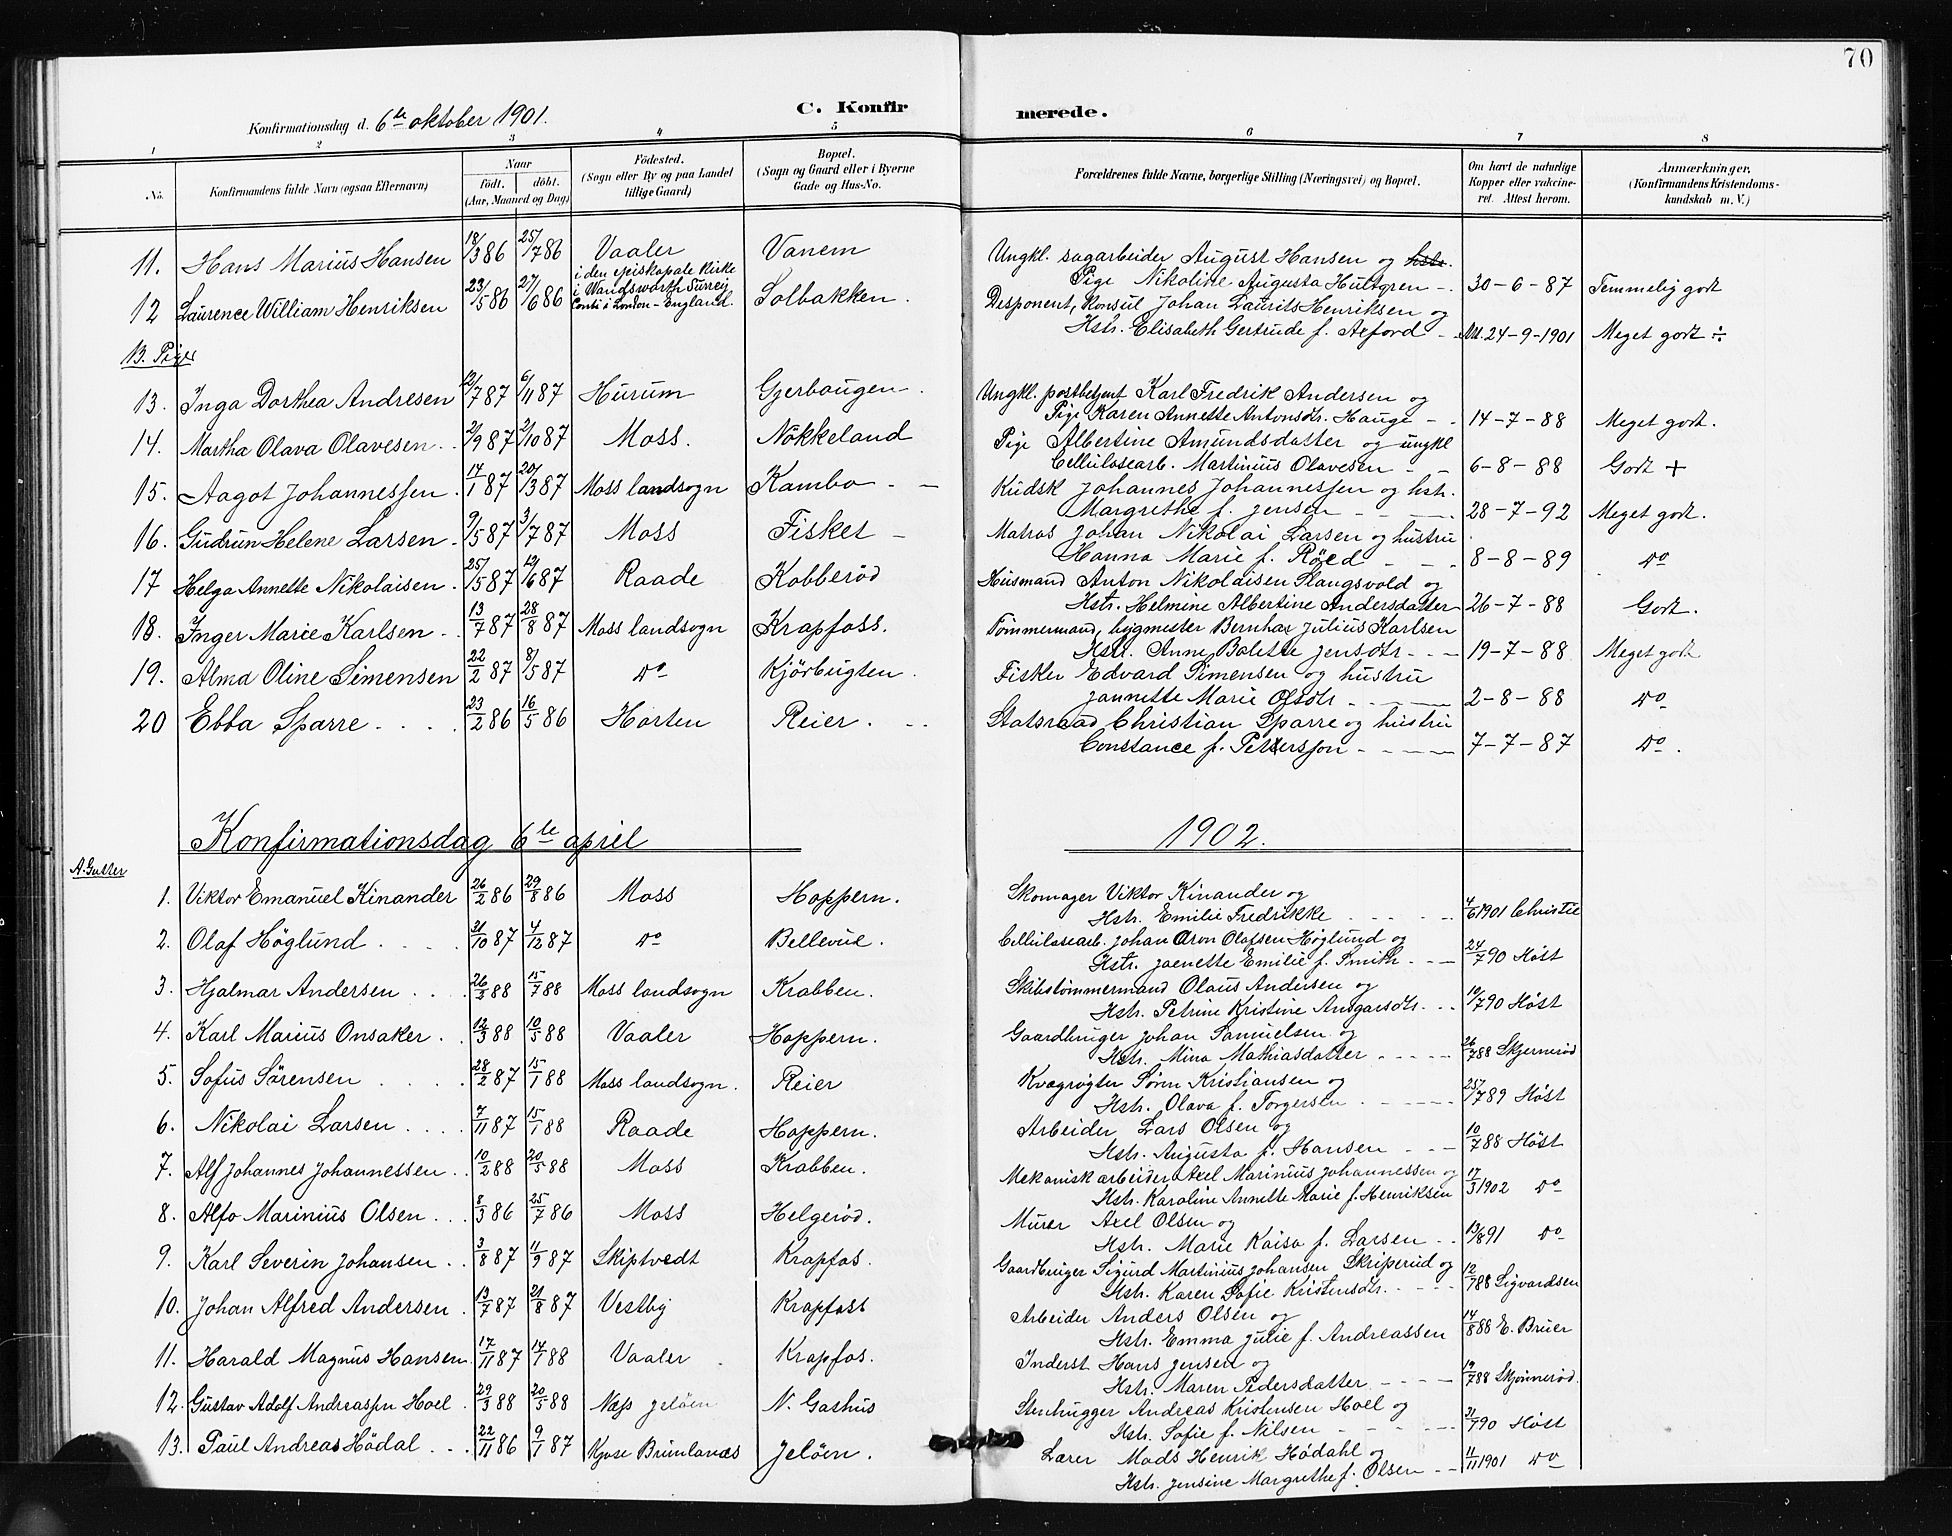 70
Konfirmationsdag d. 6te oktober 1901.
C. Konfirmerede.
1 2 3 4 5 6 7 8
No. Konfirmandens fulde Navn (ogsaa Efternavn) Naar født. døbt. (Aar, Maaned og Dag) Fødested. (Sogn eller By og paa Landet tillige Gaard) Bopæl. (Sogn og Gaard eller i Byerne Gade og Hus-No. Forældrenes fulde Navne, borgerlige Stilling (Næringsvei) og Bopæl. Om havt de naturlige Kopper eller vakcineret. Attest herom. Anmærkninger, (Konfirmandens Kristendomskundskab m. V.)
11. Hans Marius Hansen 18/3 86 25/7 86 Vaaler Vanem Ungkl. sagarbeider August Hansen og hstr.
Pige Nikoline Augusta Hultgren - 30-6-87 Temmelig godt
12 Laurence William Henriksen 23/5 86 27/6 86 i den episkopale Kirke i Wandsworth Surrey i London - England. Solbakken. Desponent, Konsul Johan Laurits Henriksen og
Hstr. Elisabeth Gertrude f. Axford - 24-9-1901 Meget godt ÷
B. Piger
13. Inga Dorthea Andresen 12/7 87 6/11 87 Hurum Gjerhaugen. Ungkl. postbetjent Karl Fredrik Andersen og
Pige Karen Annette Antonsdtr. Hauge - - 14-7-88 Meget godt.
14. Martha Olava Olavesen. 21/9 87 2/10 87 Moss. Nökkeland Pige Albertine Amundsdatter og ungkl
Cellulosearb. Martinius Olavesen - - 6-8-88 Godt +
15. Aagot Johannessen. 17/1 87 20/3 87 Moss landsogn Kambo - - Kudsk Johannes Johannessen og hstr.
Margrethe f. Jensen - - 28-7-92 Meget godt.
16. Gudrun Helene Larsen. 9/5 87 3/7 87 Moss Fisket - Matros Johan Nikolai Larsen og hustru
Hanna Marie f. Röed - - - 8-8-89 do
17 Helga Annette Nikolaisen. 25/5 87 19/6 87 Raade Kobberöd Husmand Anton Nikolaisen Slangsvold og
Hstr. Helmine Albertine Andersdatter 26-7-88 Godt.
18. Inger Marie Karlsen. 13/7 87 28/8 87 Moss landsogn Krapfoss. Tömmermand, bygmester Bernhar Julius Karlsen
Hstr. Anne Bolette Jensdtr - - - 19-7-88 Meget godt
19. Alma Oline Simensen 22/2 87 8/5 87 do Kjörbugten. Fisker Edvard Simensen og hustru
Jannette Marie Olsdtr - - - 2-8-88 do
20 Ebba Sparre. . . . 23/2 86 16/5 86 Horten Reier. - - Statsraad Christian Sparre og hustru
Constance f. Pettersson - - - - 7-7-87 do.
Konfirmationsdag 6te april 1902.
A. Gutter
1. Viktor Emanuel Kinander 26/2 86 29/8 86 Moss Hoppern. Skomager Viktor Kinander og
Hstr. Emilie Fredrikke - - - - 4/6 1901 Christie
2. Olaf Höglund . . . . 31/10 87 4/12 87 do Bellevue. Cellulosearb. Johan Aron Olafsen Höglund og
Hstr. Jaenette Emilie f. Smith - - - 24/7 90 Höst
3. Hjalmar Andersen . . . 26/3 88 15/7 88 Moss landsogn Krabben. Skibstömmermand Olaus Andersen og
Hstr. Petrine Kristine Ansgarsdtr. - - 19/7 90 Höst
4. Karl Marius Onsaker . . 12/3 88 10/5 88 Vaaler Hoppern. Gaardbruger Johan Samuelsen og
Hstr. Mina Mathiasdatter - - - - 26/7 88 Skjernerød
5. Sofus Sörensen . . . . 28/2 87 15/1 88 Moss landsogn. Reier Kvægrögter Sören Kristiansen og
Hstr. Olava f. Torgersen - - - - 25/7 89 Höst
6. Nikolai Larsen . . . . 7/11 87 15/1 88 Raade Hoppern. Arbeider Lars Olsen og
Hstr. Augusta f. Hansen - - - 10/7 88 Höst
7. Alf Johannes Johannessen . . 10/2 88 20/5 88 Moss Krabben. Mekanisk arbeider Axel Marinius Johannessen og
Hstr. Karoline Annette Marie f. Henriksen 17/3 1902 do
8. Alfo Marinius Olsen . . . 8/3 86 25/7 86 Moss Helgeröd. Murer Axel Olsen og
Hstr. Marie Kaisa f. Larsen . . 13/8 91 do
9. Karl Severin Johansen . . 3/8 87 11/9 87 Skiptvedt Krapfos. Gaardbruger Sigurd Martinius Johansen Skriperud og
Hstr. Karen Sofie Kristensdtr. - - - 12/7 88 Sigvardsen
10. Johan Alfred Andersen . 13/7 87 21/8 87 Vestby Krapfoss Arbeider Anders Olsen og
Hstr. Emma Julie f. Andreassen 14/8 88 E. Bruer
11. Harald Magnus Hansen. 17/11 87 14/1 88 Vaaler . Krapfos. Inderst Hans Jensen og
Hstr. Maren Pedersdatter - - - - 19/7 88 Skjönneröd.
12. Gustav Adolf Andreassen Hoel. 29/3 88 20/5 88 Næss Jelöen N. Gashus Stenhugger Andreas Kristensen Hoel og
Hstr. Sofie f. Nilsen - - - - 31/7 90 Höst
13. Paul Andreas Hödal . . . 22/11 86 9/1 87 Kjose Brunlanæs Jelöen. Lærer Mads Henrik Hödahl og
Hstr. Jensine Margrethe f. Olsen - - 11/11 1901 do